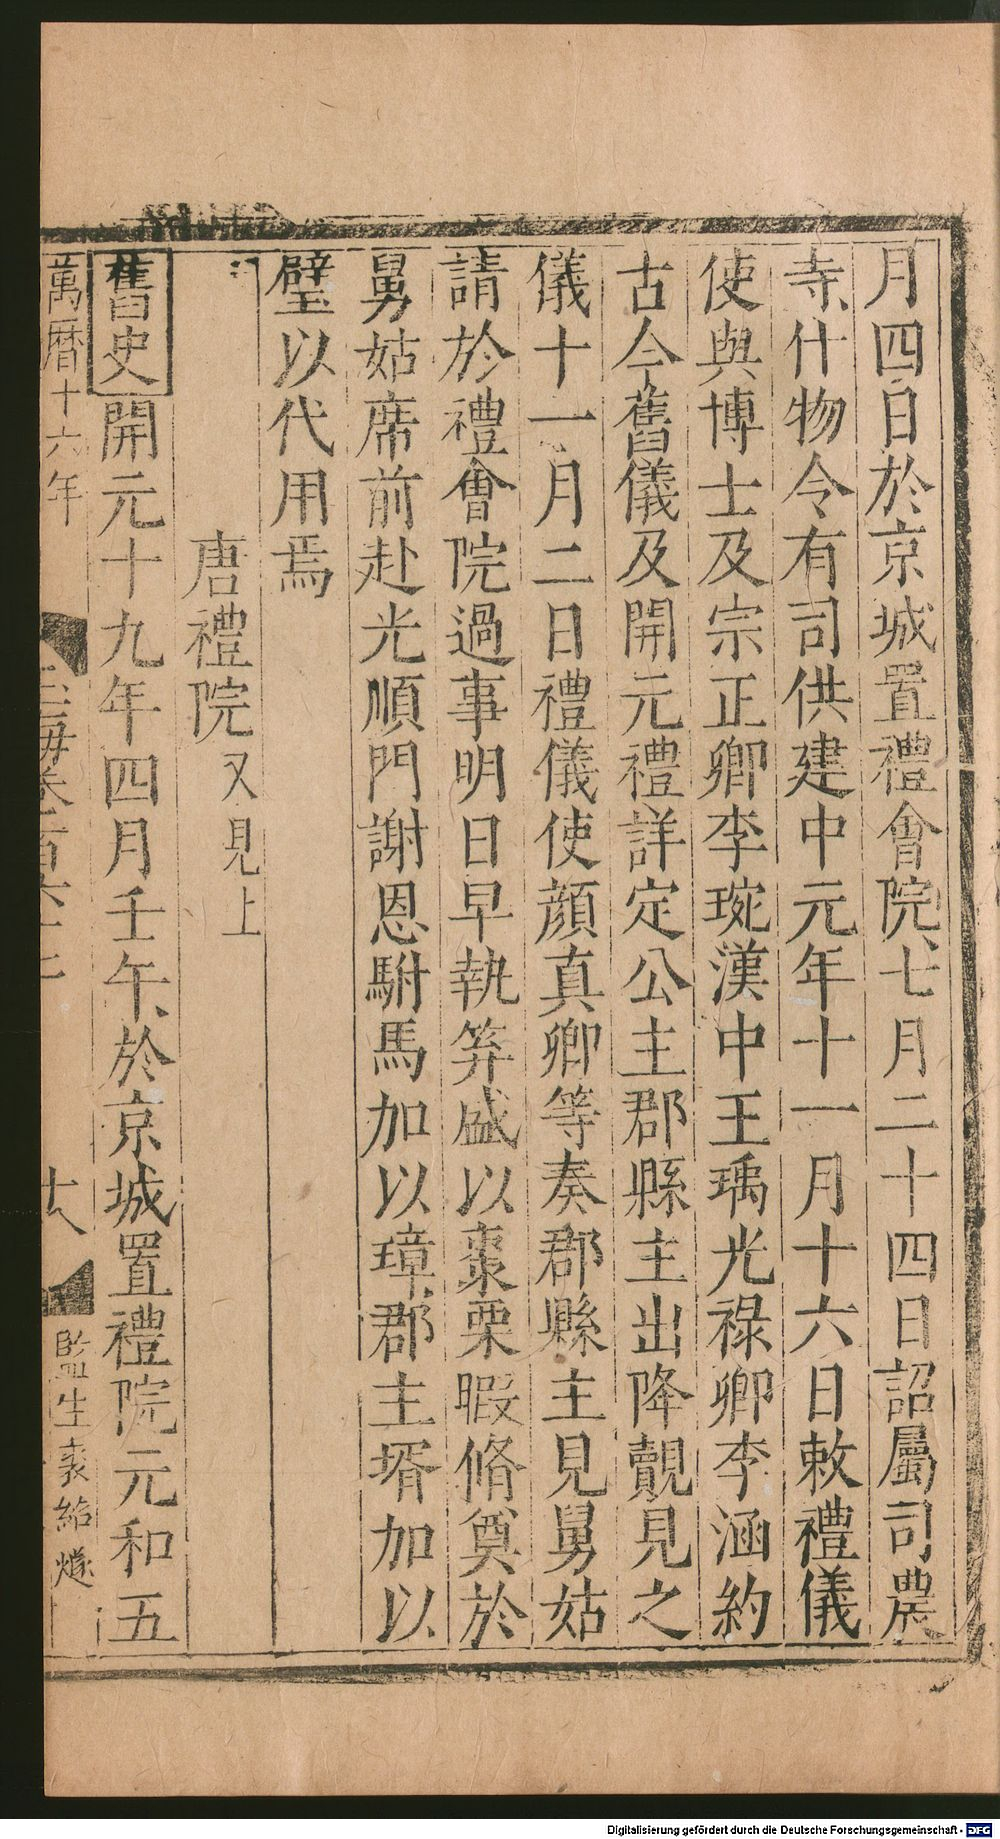 月四日於京城置禮會院七月二十四日詔屬司農
寺什物令有司供建中元年十一月十六日敕禮儀
使與博士及宗正卿李琬漢中王瑀光祿卿李涵約
古今舊儀及開元禮詳定公主郡縣主出降覿見之
儀十一月二日禮儀使顏真卿等奏郡縣主見舅姑
請於禮會院過事明日早執笲盛以棗栗腶脩奠於
舅姑席前赴光順門謝恩駙馬加以璋郡主壻加以
璧以代用焉
唐禮院又見上
舊史開元十九年四月壬午於京城置禮院元和五
萬曆十六年
玉海卷百六十七
十八
監生袁 燧
Digitalisierung gefördert durch die Deutsche Forschungsgemeinschaft - DFG